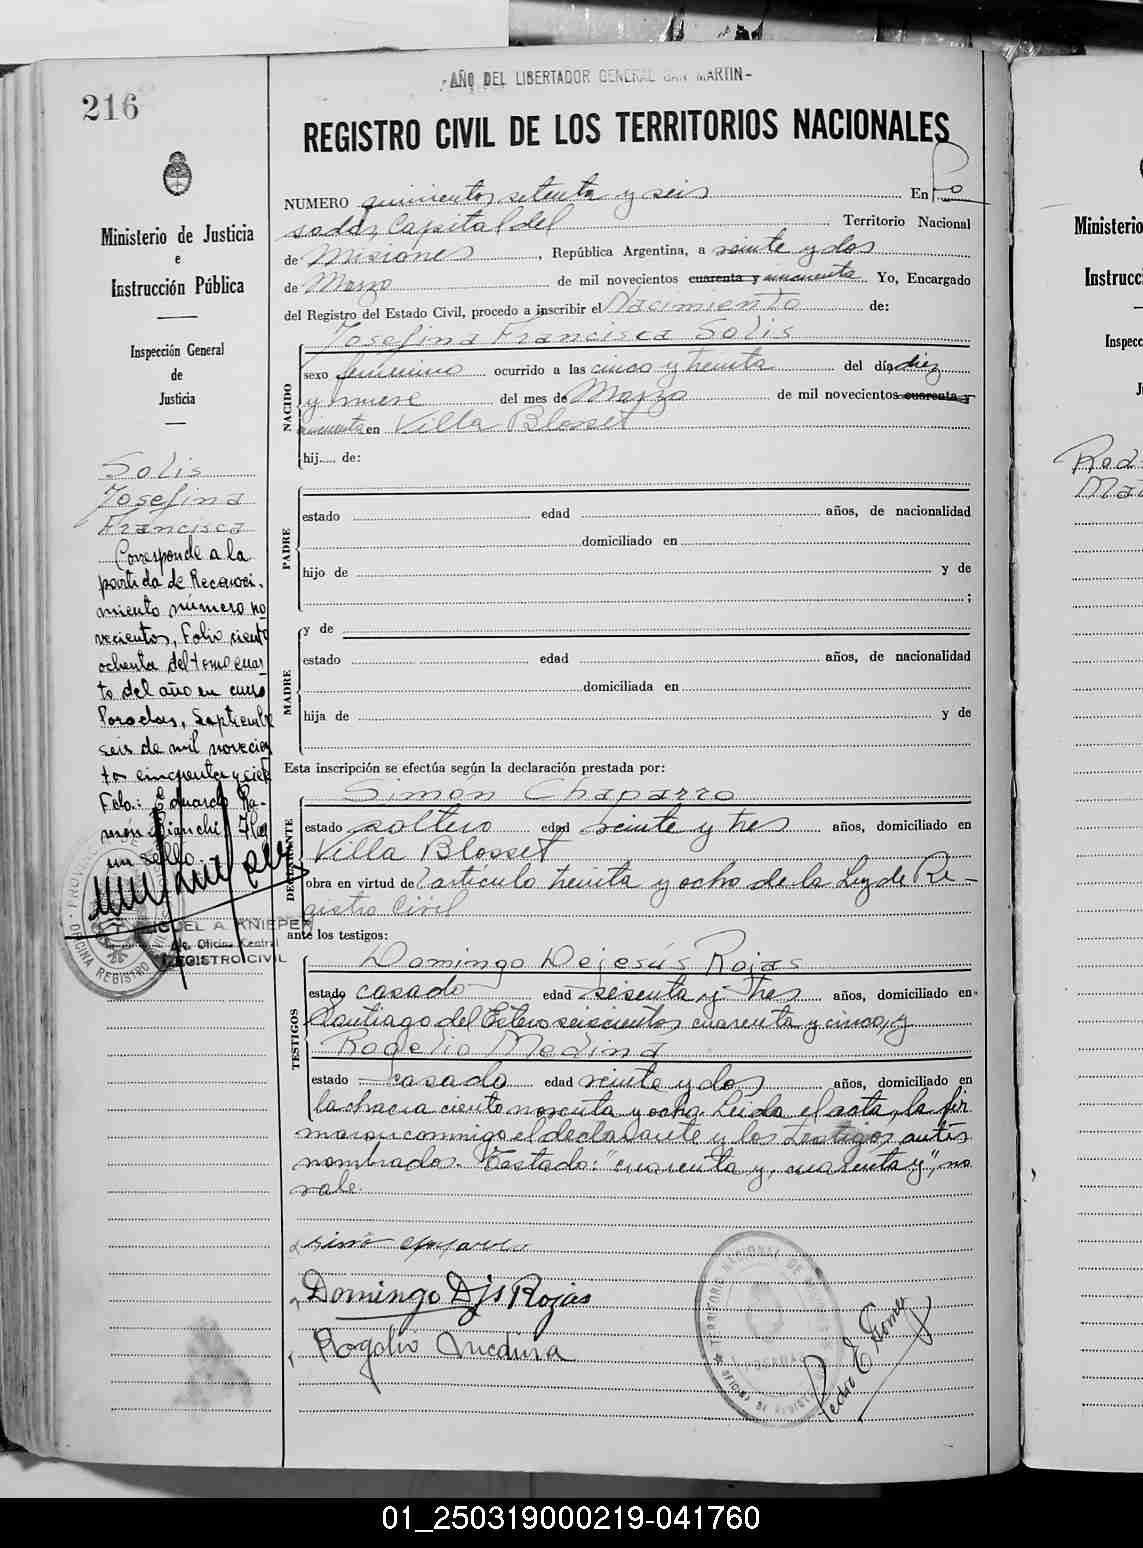 -AÑO DEL LIBERTADOR GENERAL SAN MARTIN-
216
REGISTRO CIVIL DE LOS TERRITORIOS NACIONALES
Ministerio de Justicia
e
Instrucción Pública
Inspección General
de
Justicia
NUMERO quinientos setenta y seis En Po
sadas, Capital del Territorio Nacional
de Misiones, República Argentina, a veinte y dos
de Marzo de mil novecientos cuarenta y cincuenta Yo, Encargado
del Registro del Estado Civil, procedo a inscribir el Nacimiento de:
Josefina Francisca Solis
NACIDO
sexo femenino ocurrido a las cinco y treinta del día diez
y nueve del mes de Marzo de mil novecientos cuarenta y
cincuenta en Villa Blosset
hij..... de:
PADRE
estado edad años, de nacionalidad
domiciliado en
hijo de y de
;
MADRE
y de
estado edad años, de nacionalidad
domiciliada en
hija de y de
Esta inscripción se efectúa según la declaración prestada por:
DECLARANTE
Simon Chaparro
estado soltero edad veinte y tres años, domiciliado en
Villa Blosset
obra en virtud del artículo treinta y ocho de la Ley de Re-
gistro Civil
ante los testigos:
TESTIGOS
Domingo Dejesús Rojas
estado casado edad sesenta y tres años, domiciliado en
Santiago del Estero seiscientos cuarenta y cinco, y
Rogelio Medina
estado casado edad veinte y dos años, domiciliado en
la chacra ciento noventa y ocho. Leida el acta, la fir
maron conmigo el declarante y los testigos antes
nombrados. Testado: "cuarenta y, cuarenta y", no
vale.
Domingo Djs Rojas
Rogelio Medina
Pedro E Gomez
Solis
Josefina
Francisca
Corresponde a la
partida de Reconoci-
miento número no
vecientos, Folio ciento
ochenta del tomo cuar
to del año en curso
Posadas, Septiembre
seis de mil novecien
tos cincuenta y siete
Fdo.: Eduardo Ra-
món Bianchi. Hay
un sello.
MIGUEL A. KNIEPER
Oficina Central
REGISTRO CIVIL
OFICINA REGISTRO CIVIL
TERRITORIO NACIONAL DE
POSADAS
Ministerio
Instrucc
Inspecc
Rod
Ma
01_250319000219-041760